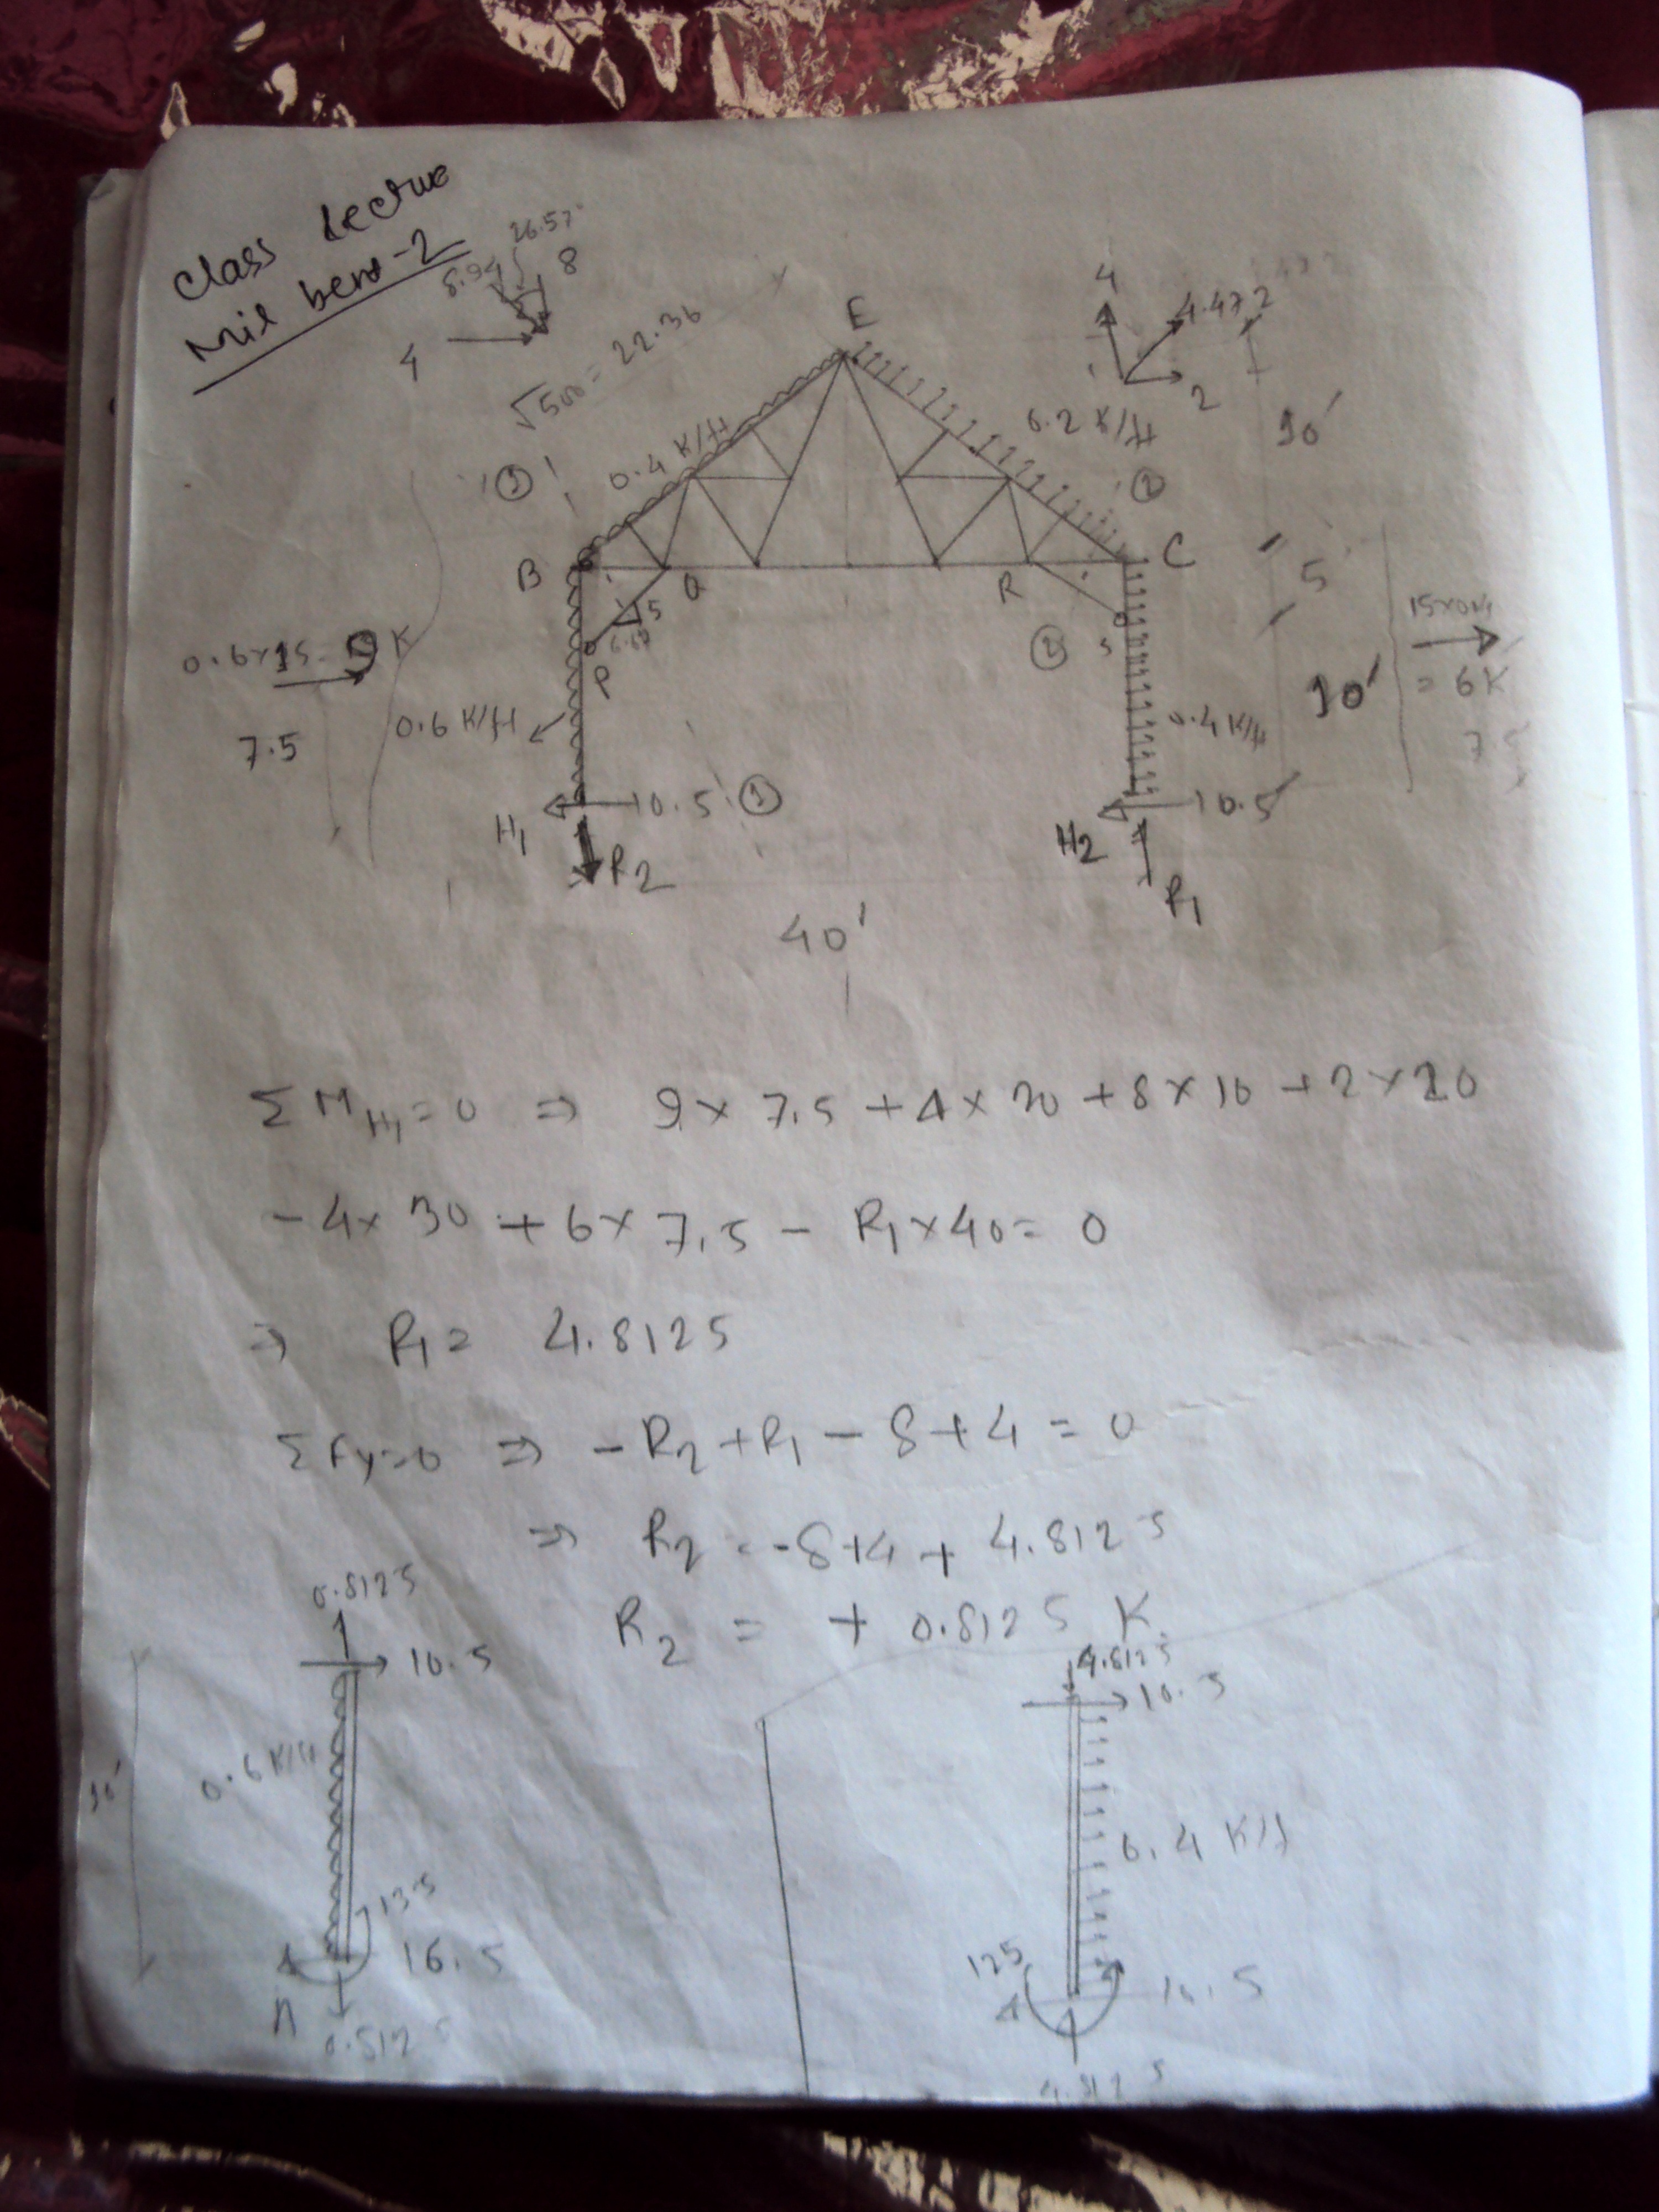 Class Lecture
Mil bent-2
26.57°
8.94
8
4
√500 = 22.36
E
4
4.472
2
0.4 K/ft
0.2 K/ft
10'
①
②
B
Q
R
C
5'
5
P
②
S
0.6x15 = 9 K
7.5
0.6 K/ft
0.4 K/ft
10'
15x0.4
= 6K
7.5
H1
10.5
①
H2
10.5
R2
R1
40'
ΣM H1 = 0 ⇒ 9 x 7.5 + 4 x 20 + 8 x 10 + 2 x 20
- 4 x 30 + 6 x 7.5 - R1 x 40 = 0
⇒ R1 = 4.8125
ΣFy=0 ⇒ -R2 + R1 - 8 + 4 = 0
⇒ R2 = -8+4 + 4.8125
R2 = + 0.8125 K
0.8125
10.5
0.6 K/ft
10'
135
16.5
A
0.8125
4.8125
10.5
0.4 K/f
125
4.8125